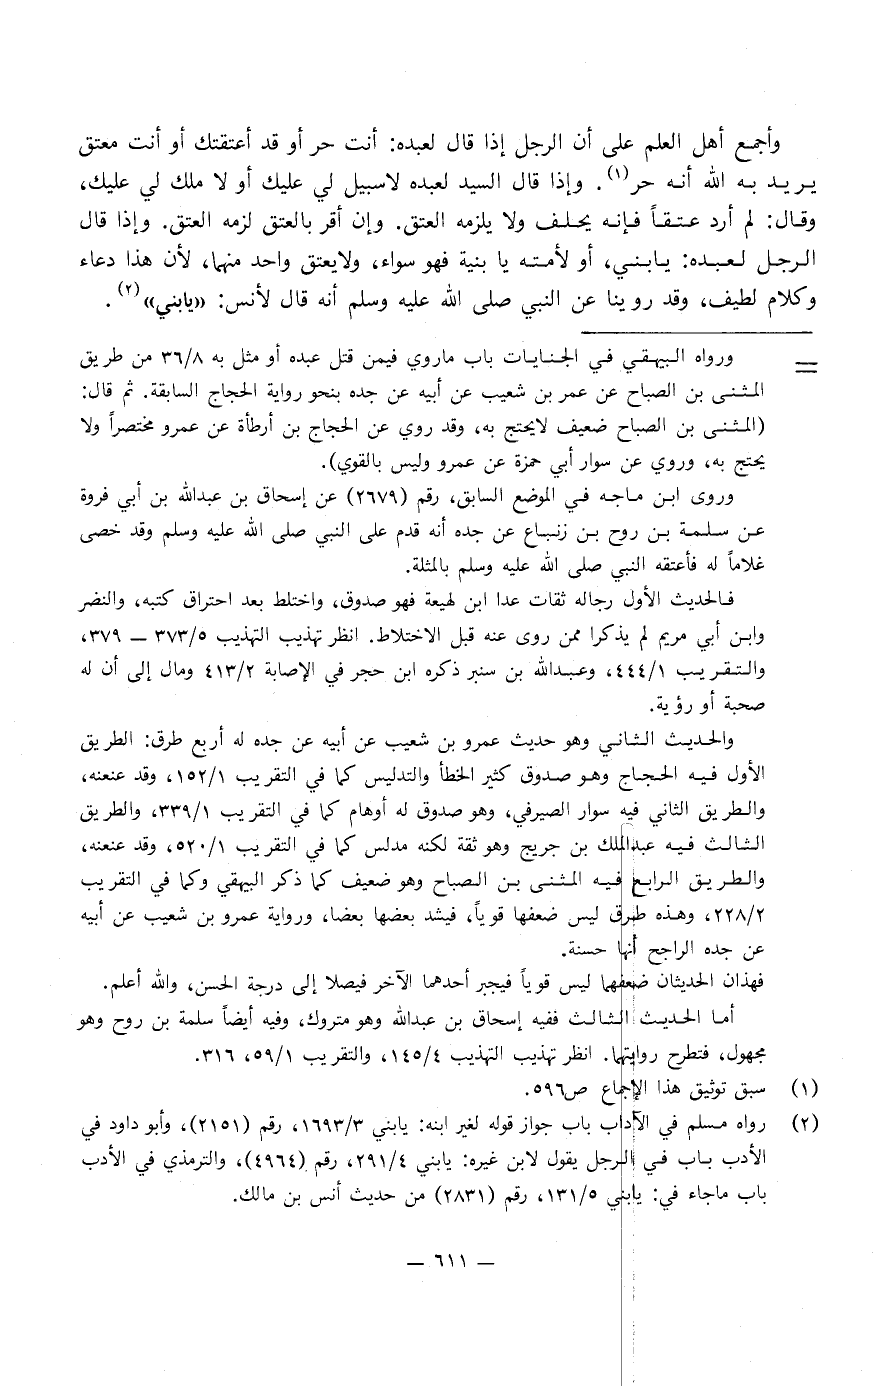 وأجمع أهل العلم على أن الرجل إذا قال لعبده: أنت حر أو قد أعتقتك أو أنت معتق
يريد به الله أنه حر(١). وإذا قال السيد لعبده لاسبيل لي عليك أو لا ملك لي عليك،
وقال: لم أرد عتقاً فإنه يحلف ولا يلزمه العتق. وإن أقر بالعتق لزمه العتق. وإذا قال
الرجل لعبده: يابني، أو لأمته يا بنية فهو سواء، ولايعتق واحد منهما، لأن هذا دعاء
وكلام لطيف، وقد روينا عن النبي صلى الله عليه وسلم أنه قال لأنس: «يابني»(٢).
= ورواه البيهقي في الجنايات باب ماروي فيمن قتل عبده أو مثل به ٣٦/٨ من طريق
المثنى بن الصباح عن عمر بن شعيب عن أبيه عن جده بنحو رواية الحجاج السابقة. ثم قال:
(المثنى بن الصباح ضعيف لايحتج به، وقد روي عن الحجاج بن أرطأة عن عمرو مختصراً ولا
يحتج به، وروي عن سوار أبي حمزة عن عمرو وليس بالقوي).
وروى ابن ماجه في الموضع السابق، رقم (٢٦٧٩) عن إسحاق بن عبدالله بن أبي فروة
عن سلمة بن روح بن زنباع عن جده أنه قدم على النبي صلى الله عليه وسلم وقد خصى
غلاماً له فأعتقه النبي صلى الله عليه وسلم بالمثلة.
فالحديث الأول رجاله ثقات عدا ابن لهيعة فهو صدوق، واختلط بعد احتراق كتبه، والنضر
وابن أبي مريم لم يذكرا ممن روى عنه قبل الاختلاط. انظر تهذيب التهذيب ٣٧٣/٥ – ٣٧٩،
والتقريب ٤٤٤/١، وعبدالله بن سنبر ذكره ابن حجر في الإصابة ٤١٣/٢ ومال إلى أن له
صحبة أو رؤية.
والحديث الثاني وهو حديث عمرو بن شعيب عن أبيه عن جده له أربع طرق: الطريق
الأول فيه الحجاج وهو صدوق كثير الخطأ والتدليس كما في التقريب ١٥٢/١، وقد عنعنه،
والطريق الثاني فيه سوار الصيرفي، وهو صدوق له أوهام كما في التقريب ٣٣٩/١، والطريق
الثالث فيه عبدالملك بن جريج وهو ثقة لكنه مدلس كما في التقريب ٥٢٠/١، وقد عنعنه،
والطريق الرابع فيه المثنى بن الصباح وهو ضعيف كما ذكر البيهقي وكما في التقريب
٢٢٨/٢، وهذه طرق ليس ضعفها قوياً، فيشد بعضها بعضا، ورواية عمرو بن شعيب عن أبيه
عن جده الراجح أنها حسنة.
فهذان الحديثان ضعفهما ليس قوياً فيجبر أحدهما الآخر فيصلا إلى درجة الحسن، والله أعلم.
أما الحديث الثالث ففيه إسحاق بن عبدالله وهو متروك، وفيه أيضاً سلمة بن روح وهو
مجهول، فتطرح روايتهما. انظر تهذيب التهذيب ١٤٥/٤، والتقريب ٥٩/١، ٣١٦.
(١) سبق توثيق هذا الإجماع ص٥٩٦.
(٢) رواه مسلم في الآداب باب جواز قوله لغير ابنه: يابني ١٦٩٣/٣، رقم (٢١٥١)، وأبو داود في
الأدب باب في الرجل يقول لابن غيره: يابني ٢٩١/٤، رقم (٤٩٦٤)، والترمذي في الأدب
باب ماجاء في: يابني ١٣١/٥، رقم (٢٨٣١) من حديث أنس بن مالك.
– ٦١١ –